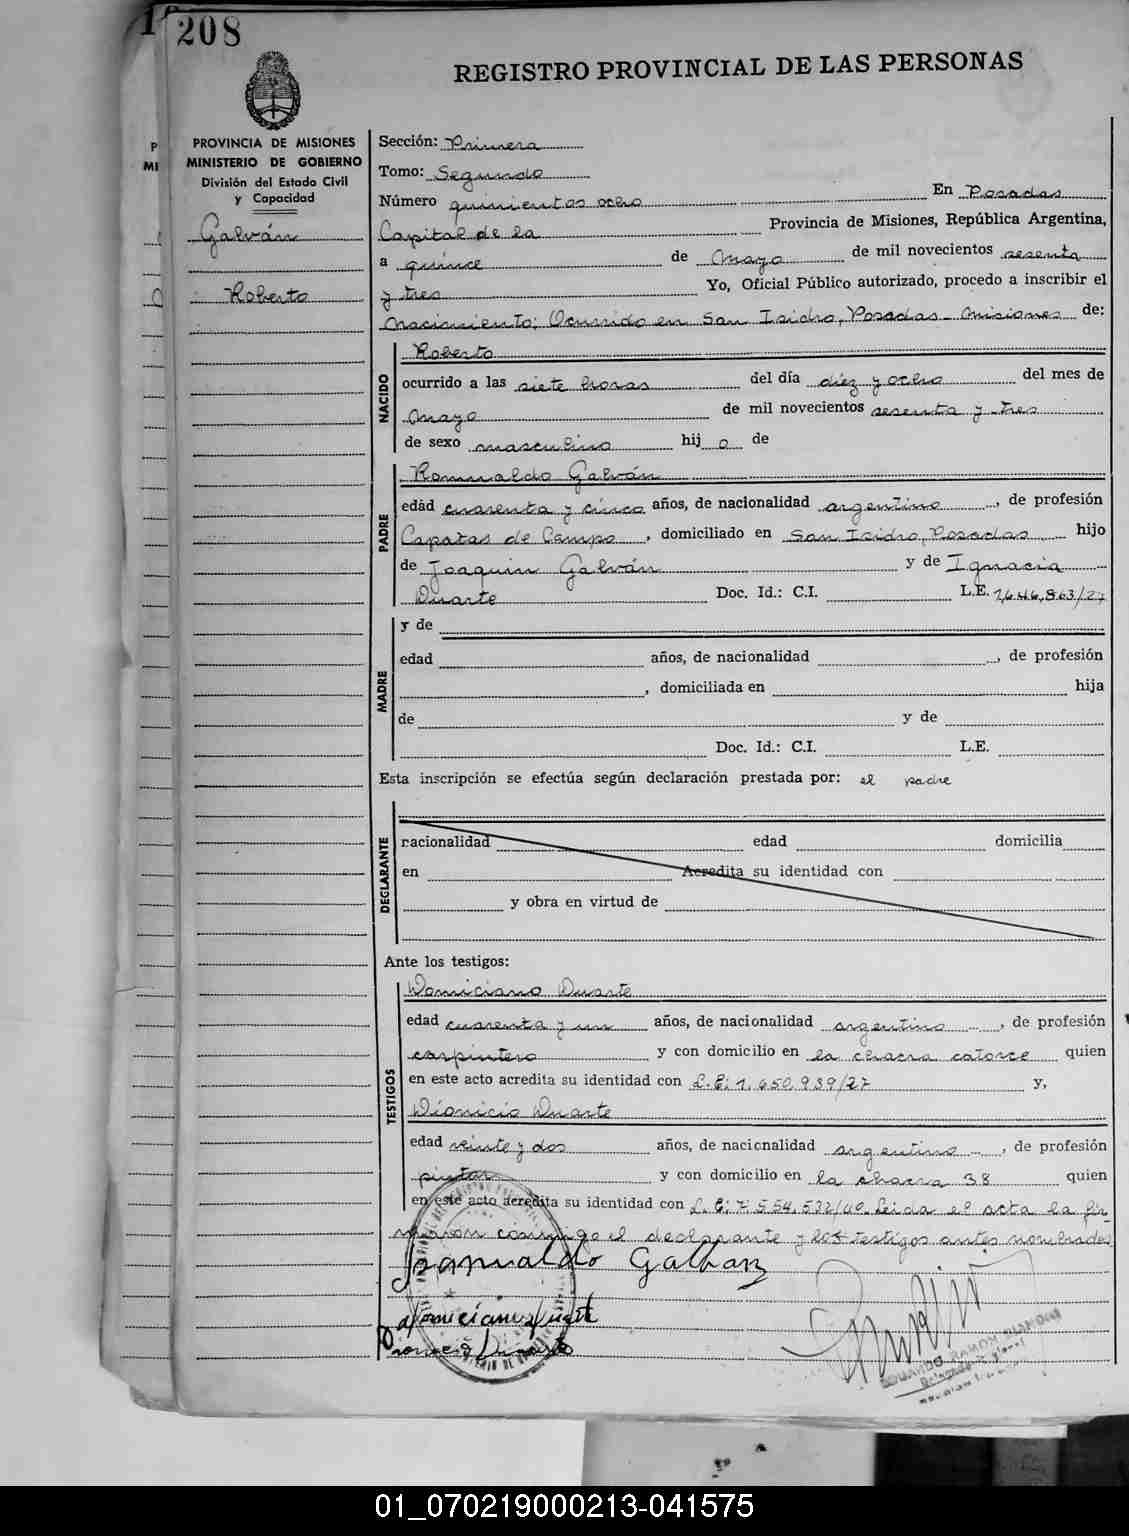 208
REGISTRO PROVINCIAL DE LAS PERSONAS
PROVINCIA DE MISIONES
MINISTERIO DE GOBIERNO
División del Estado Civil
y Capacidad
Galván
Roberto
Sección: Primera
Tomo: Segundo
Número quinientos ocho En Posadas
Capital de la Provincia de Misiones, República Argentina,
a quince de Mayo de mil novecientos sesenta
y tres Yo, Oficial Público autorizado, procedo a inscribir el
Nacimiento; Ocurrido en San Isidro, Posadas - Misiones de:
NACIDO
Roberto
ocurrido a las siete horas del día diez y ocho del mes de
Mayo de mil novecientos sesenta y tres
de sexo masculino hijo de
PADRE
Romualdo Galván
edad cuarenta y cinco años, de nacionalidad argentino, de profesión
Capataz de Campo, domiciliado en San Isidro, Posadas hijo
de Joaquin Galván y de Ignacia
Duarte Doc. Id.: C.I. L.E. 1,646,863/27
MADRE
y de
edad años, de nacionalidad , de profesión
, domiciliada en hija
de y de
Doc. Id.: C.I. L.E.
Esta inscripción se efectúa según declaración prestada por: el padre
DECLARANTE
nacionalidad edad domicilia
en Acredita su identidad con
y obra en virtud de
Ante los testigos:
TESTIGOS
Domiciano Duarte
edad cuarenta y un años, de nacionalidad argentino, de profesión
carpintero y con domicilio en la chacra catorce quien
en este acto acredita su identidad con L.E; 1.650.939/27 y,
Dionicio Duarte
edad veinte y dos años, de nacionalidad argentino, de profesión
pintor y con domicilio en la chacra 38 quien
en este acto acredita su identidad con L.E; 7.554.532/40. Leida el acta la fir-
maron conmigo el declarante y los testigos antes nombrados
Romualdo Galban
Domiciano Duarte
Dionicio Duarte
EDUARDO RAMON
01_070219000213-041575